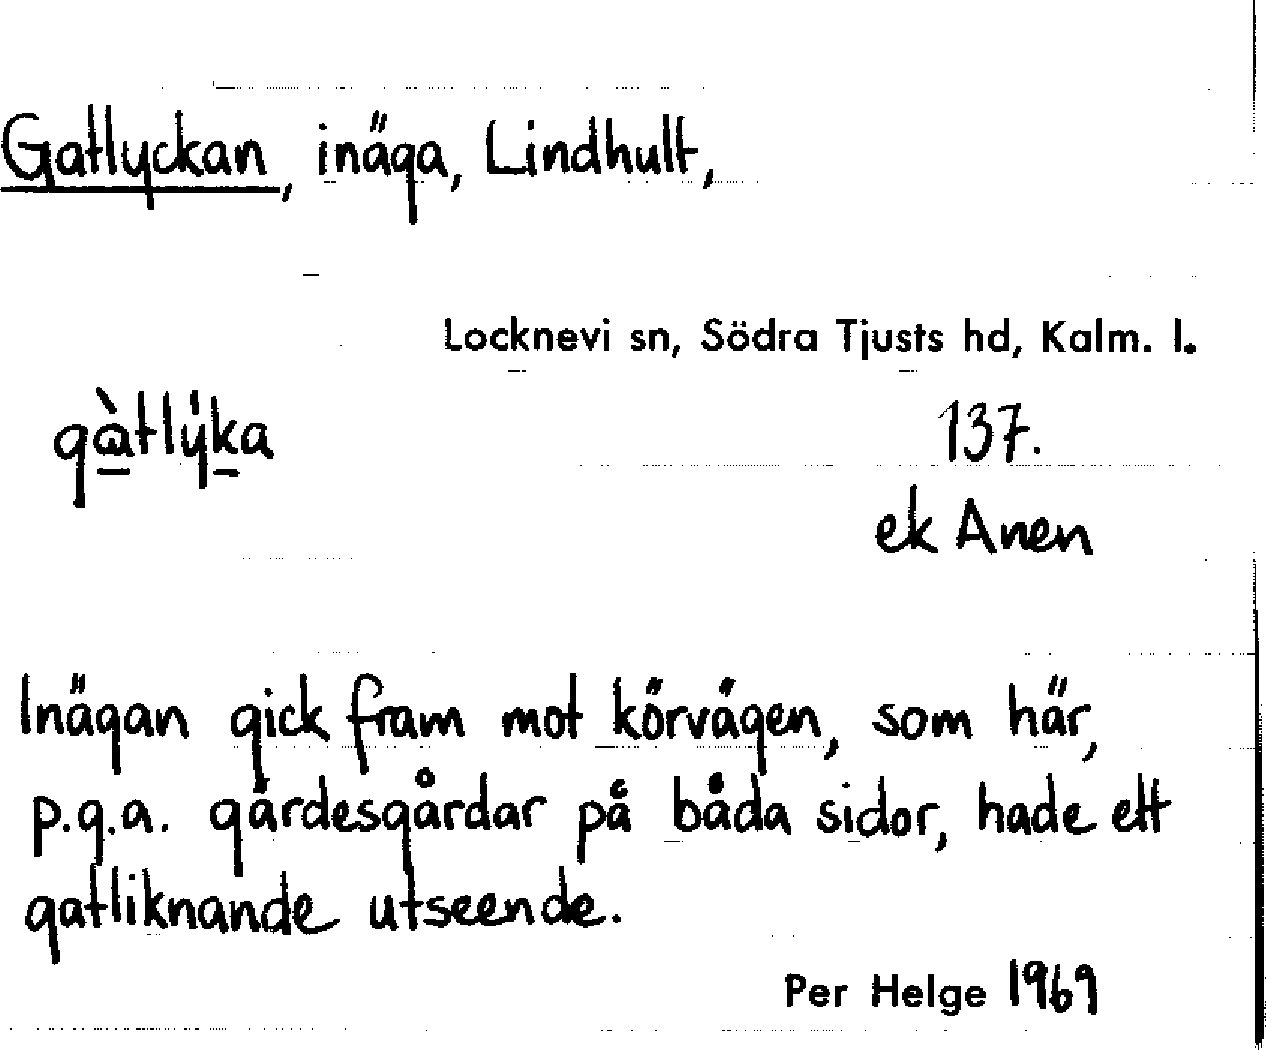 Gatlyckan, inäga, Lindhult,
Locknevi sn, Södra Tjusts hd, Kalm. l.
gàtlÿka
137.
ek Anen
Inägan gick fram mot körvägen, som här,
p.g.a. gärdesgårdar på båda sidor, hade ett
gatliknande utseende.
Per Helge 1969